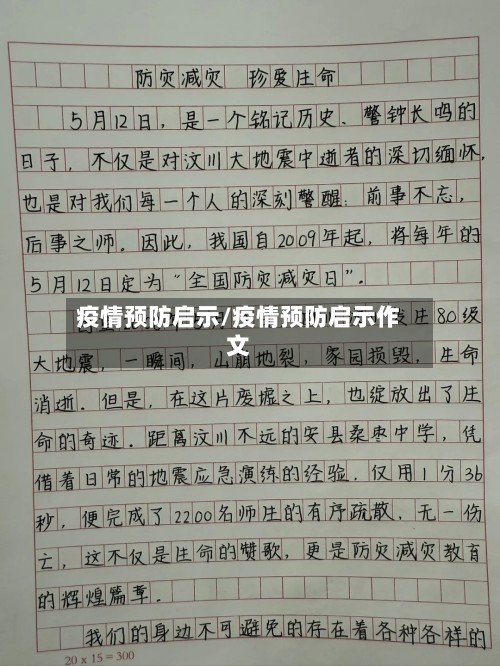 防灾减灾 珍爱生命
5月12日，是一个铭记历史、警钟长鸣的
日子，不仅是对汶川大地震中逝者的深切缅怀，
也是对我们每一个人的深刻警醒：前事不忘，
后事之师。因此，我国自2009年起，将每年的
5月12日定为“全国防灾减灾日”。
疫情预防启示/疫情预防启示作
文
生8.0级
大地震，一瞬间，山崩地裂，家园损毁，生命
消逝。但是，在这片废墟之上，也绽放出了生
命的奇迹。距离汶川不远的安县桑枣中学，凭
借着日常的地震应急演练的经验，仅用1分36
秒，便完成了2200名师生的有序疏散，无一伤
亡，这不仅是生命的赞歌，更是防灾减灾教育
的辉煌篇章。
我们的身边不可避免的存在着各种各样的
20 x 15 = 300